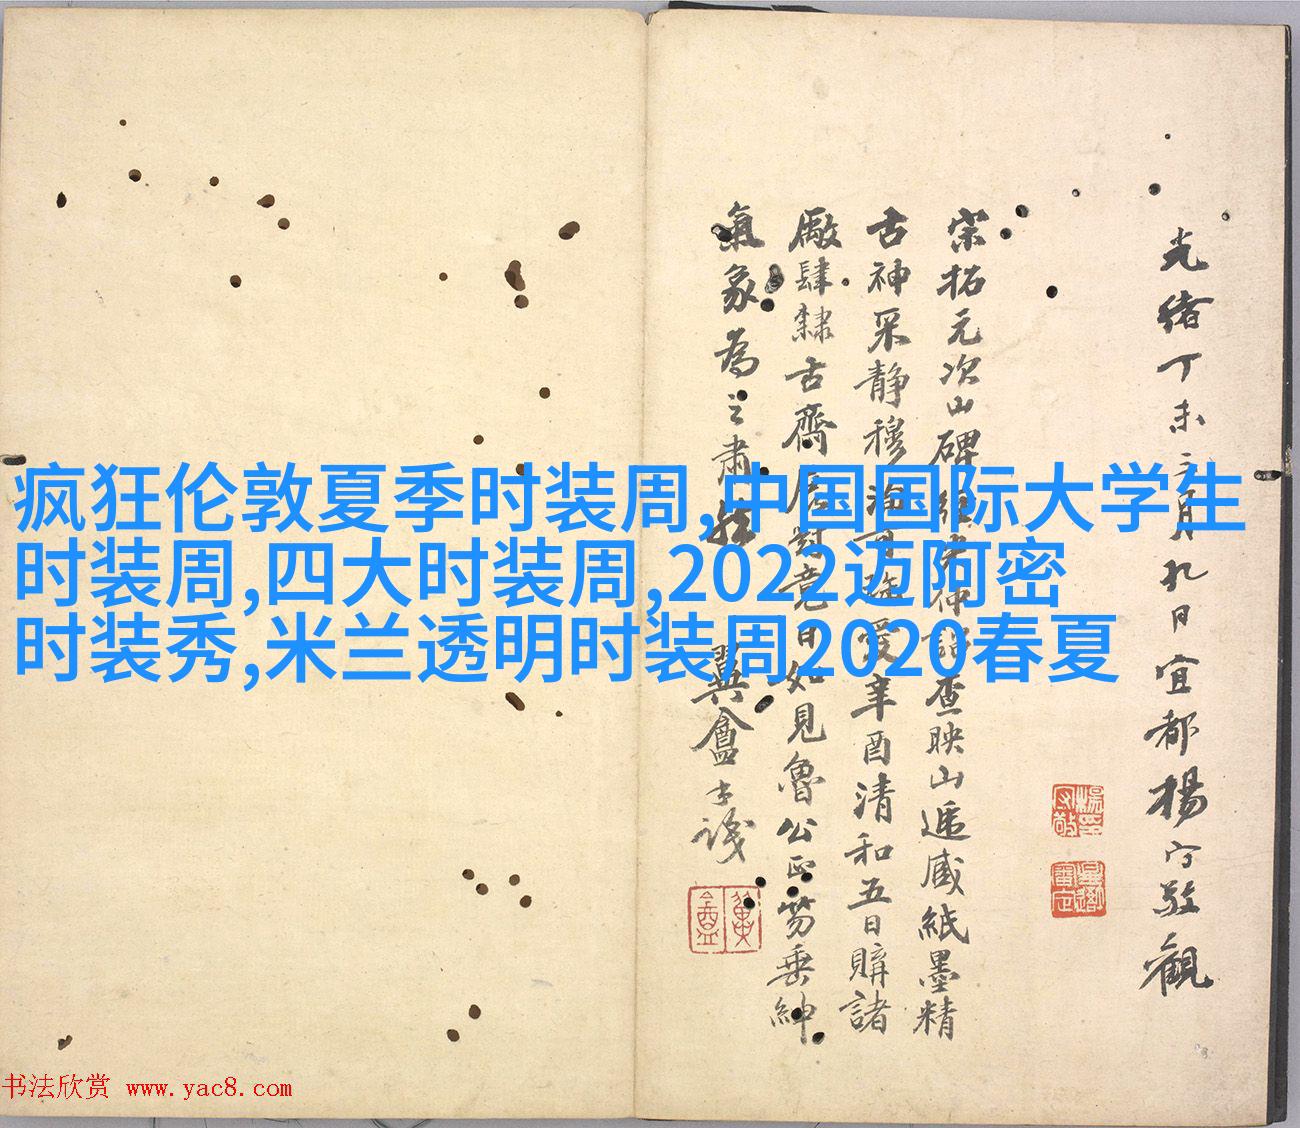 光緒丁未二月九日宜都楊守敬觀
宋拓元次山碑
查映山遞藏紙墨精
古神采静穆
愛辛酉清和五日購諸
廠肆隸古齋
竟日如見魯公正笏垂紳
氣象為之肅
翼盦
疯狂伦敦夏季时装周,中国国际大学生
时装周,四大时装周,2022迈阿密
时装秀,米兰透明时装周2020春夏
书法欣赏 www.yac8.com